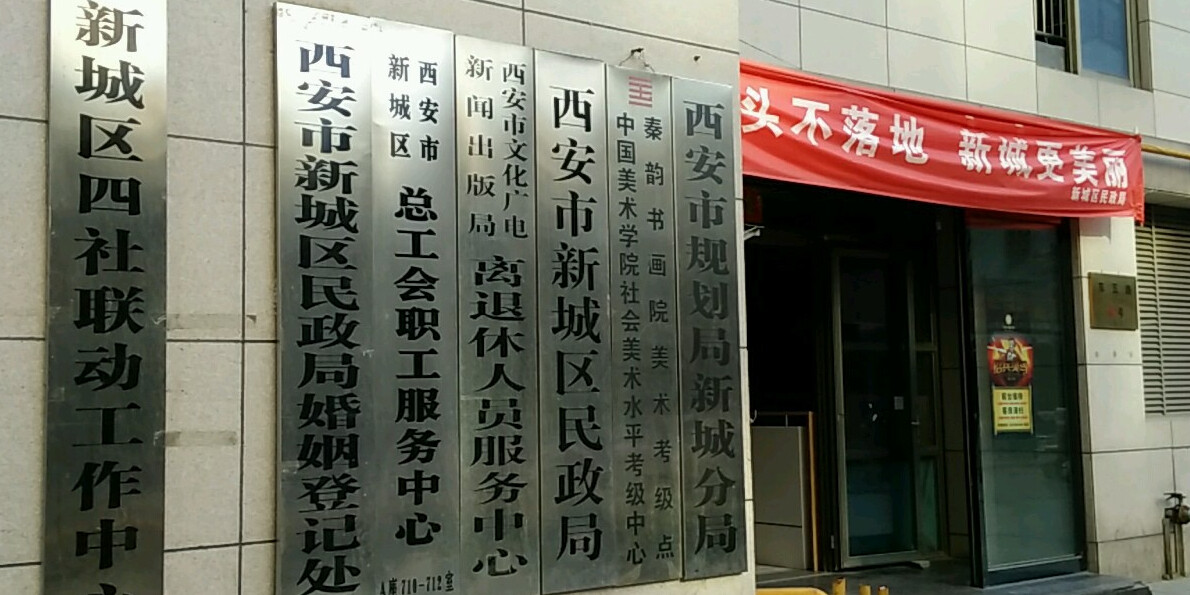 新城区四社联动工作中心
西安市新城区民政局婚姻登记处
西安市
新城区
总工会职工服务中心
A座710-712室
西安市文化广电
新闻出版局
离退休人员服务中心
西安市新城区民政局
秦韵书画院美术考级点
中国美术学院社会美术水平考级中心
西安市规划局新城分局
头不落地 新城更美丽
新城区民政局